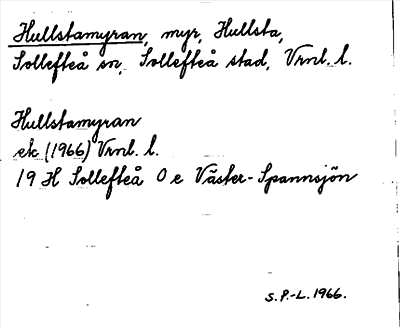 Hullstamyran, myr, Hullsta,
Sollefteå sn, Sollefteå stad, Vrnl. l.
Hullstamyran
ek (1966) Vrnl. l.
19 H Sollefteå O e Väster-Spannsjön
S.P.-L. 1966.